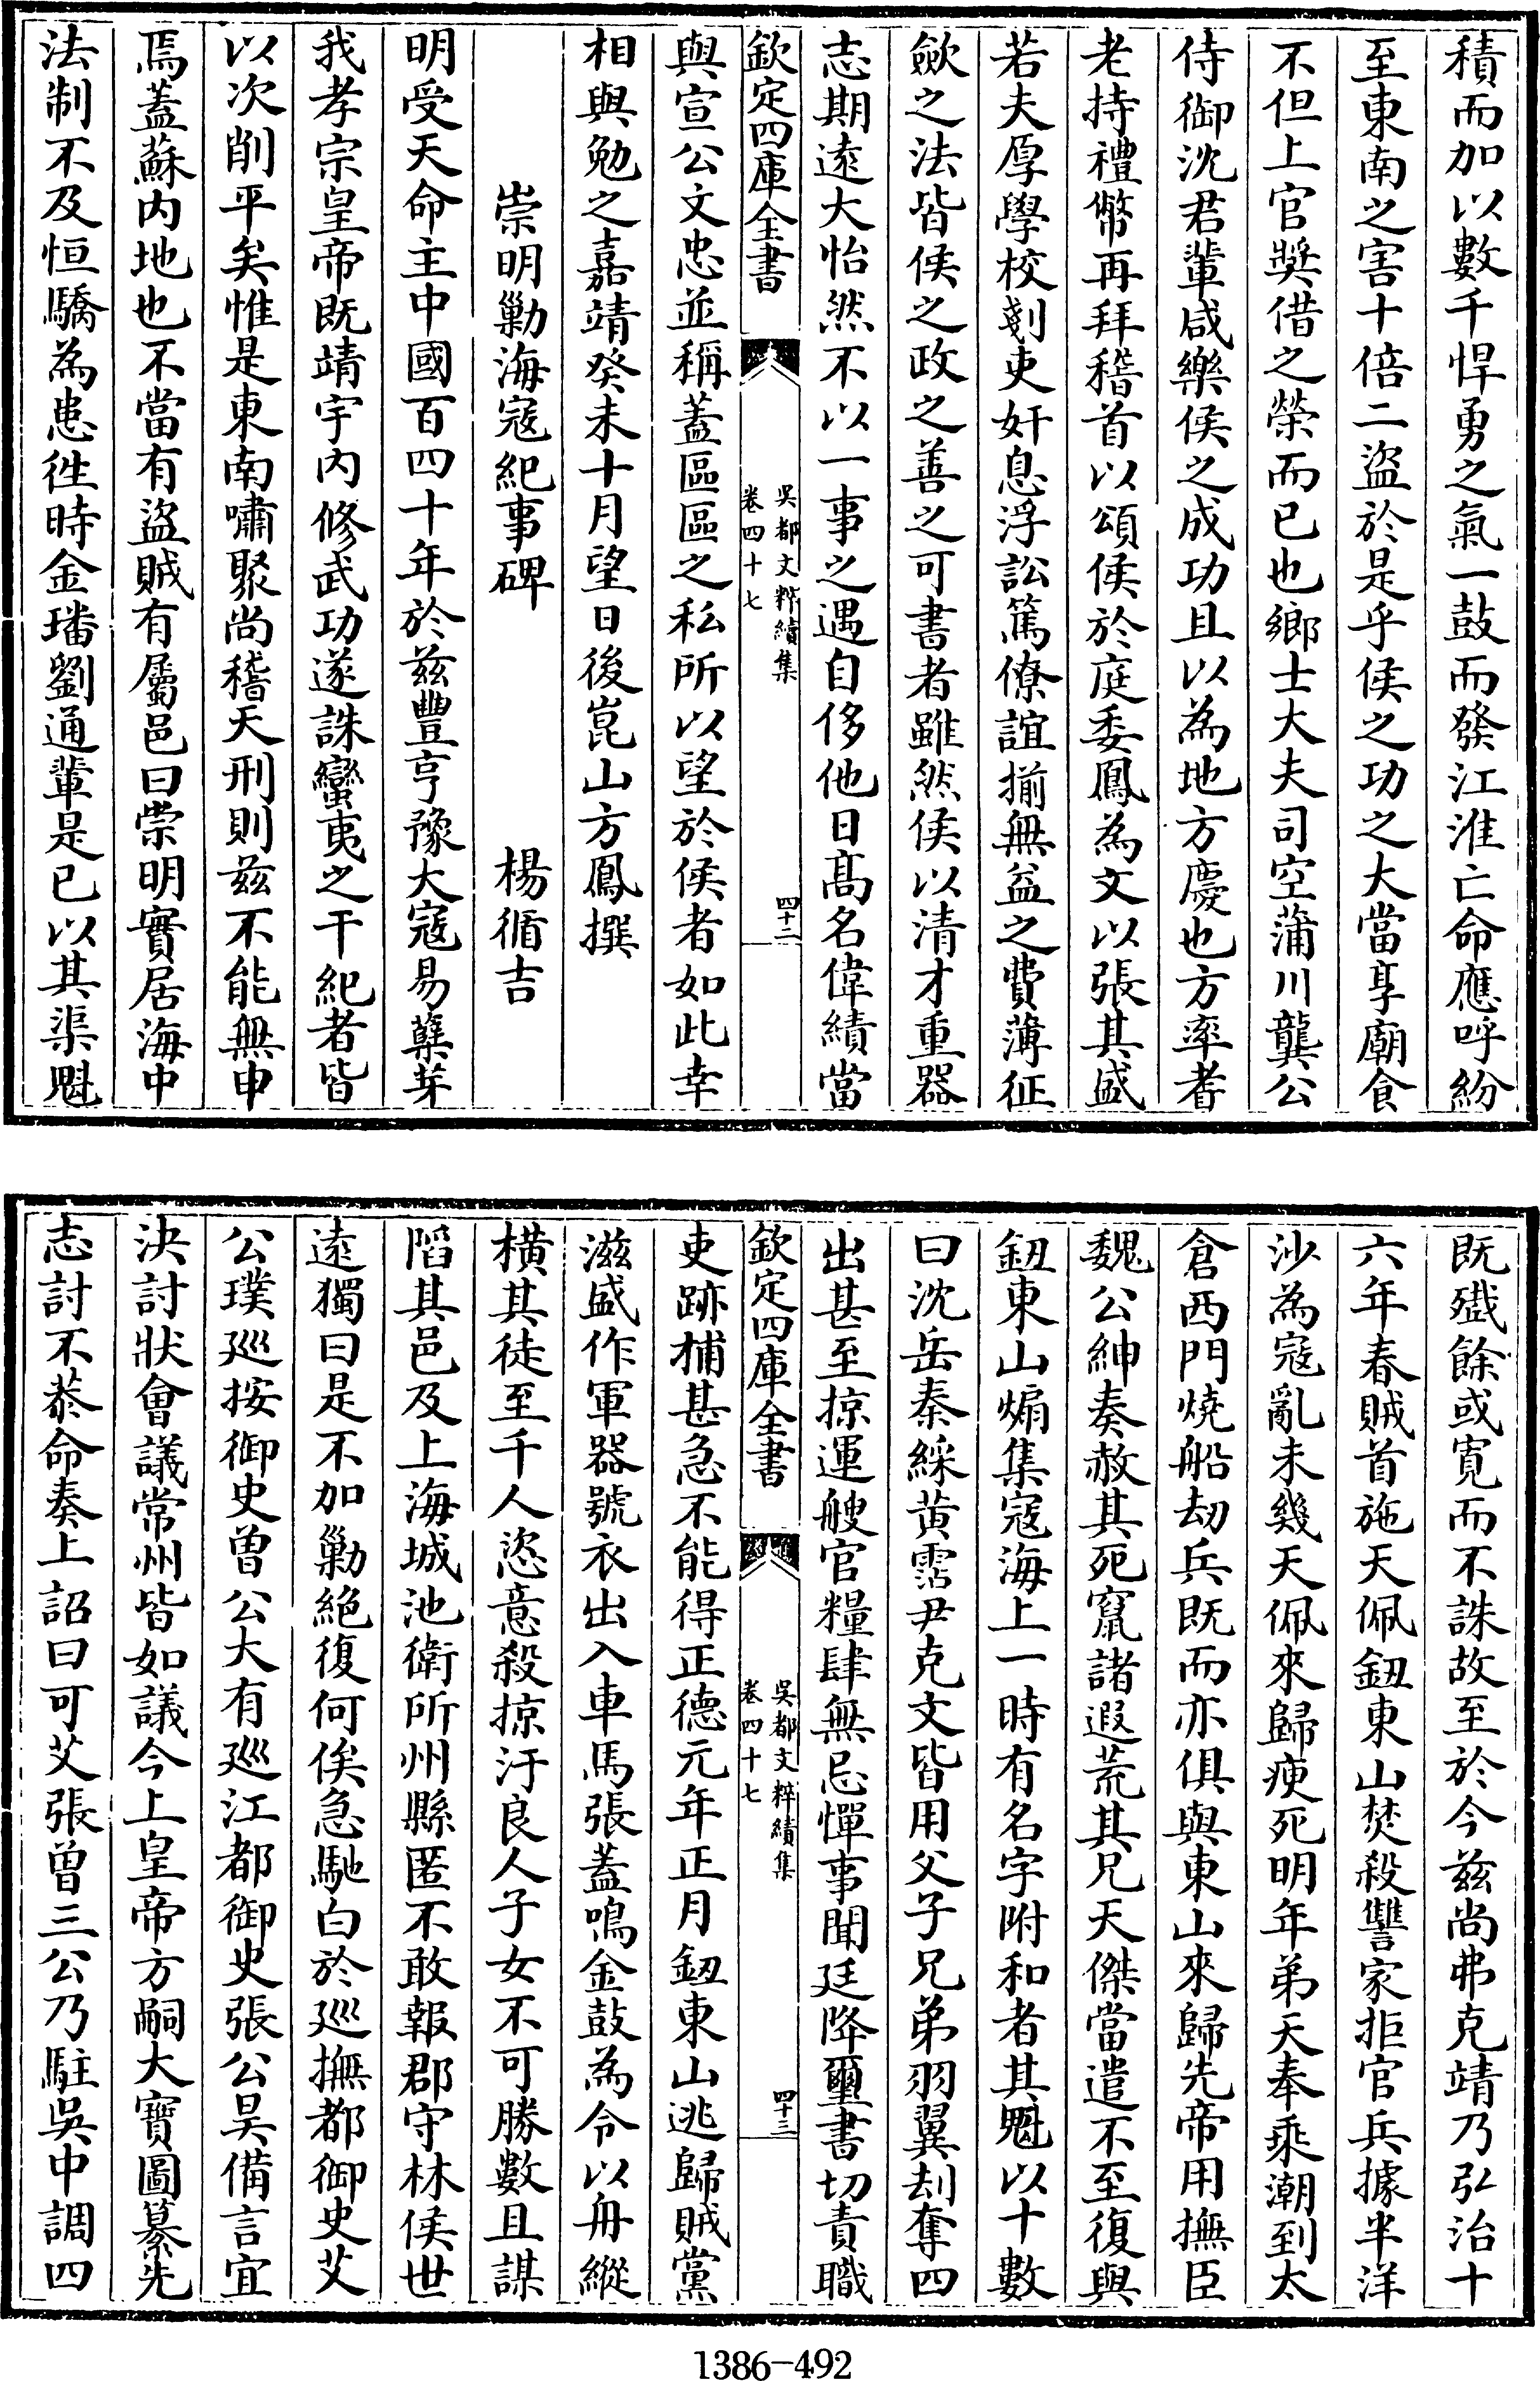 積而加以數千悍勇之氣一鼓而發江淮亡命應呼紛
至東南之害十倍二盜於是乎侯之功之大當享廟食
不但上官奬借之榮而已也鄉士大夫司空蒲川龔公
侍御沈君輩咸樂侯之成功且以為地方慶也方率耆
老持禮幣再拜稽首以頌侯於庭委鳳為文以張其盛
若夫厚學校剗吏奸息浮訟篤僚誼揃無益之費薄征
歛之法皆侯之政之善之可書者雖然侯以清才重器
志期遠大怡然不以一事之遇自侈他日髙名偉績當
欽定四庫全書
吳都文粹續集
卷四十七
四十二
與宣公文忠並稱蓋區區之私所以望於侯者如此幸
相與勉之嘉靖癸未十月望日後崑山方鳳撰
崇明勦海寇紀事碑
楊循吉
明受天命主中國百四十年於兹豐亨豫大寇易蘖芽
我孝宗皇帝既靖宇内修武功遂誅蠻夷之干紀者皆
以次削平矣惟是東南嘯聚尚稽天刑則兹不能無申
焉蓋蘇内地也不當有盜賊有屬邑曰崇明實居海中
法制不及恒驕為患徃時金璠劉通輩是已以其渠魁
既殲餘或寛而不誅故至於今兹尚弗克靖乃弘治十
六年春賊首施天佩鈕東山焚殺讐家拒官兵據半洋
沙為寇亂未幾天佩來歸瘐死明年弟天奉乘潮到太
倉西門燒船刼兵既而亦俱與東山來歸先帝用撫臣
魏公紳奏赦其死竄諸遐荒其兄天傑當遣不至復與
鈕東山煽集寇海上一時有名字附和者其魁以十數
曰沈岳秦綵黄霑尹克文皆用父子兄弟羽翼刦奪四
出甚至掠運艘官糧肆無忌憚事聞廷降璽書切責職
欽定四庫全書
吳都文粹續集
卷四十七
四十三
吏跡捕甚急不能得正德元年正月鈕東山逃歸賊黨
滋盛作軍器號衣出入車馬張蓋鳴金鼓為令以舟縱
横其徒至千人恣意殺掠汙良人子女不可勝數且謀
䧟其邑及上海城池衛所州縣匿不敢報郡守林侯世
逺獨曰是不加勦絶復何俟急馳白於廵撫都御史艾
公璞廵按御史曽公大有廵江都御史張公昊備言宜
決討狀會議常州皆如議今上皇帝方嗣大寶圖纂先
志討不㳟命奏上詔曰可艾張曽三公乃駐吳中調四
1386-492